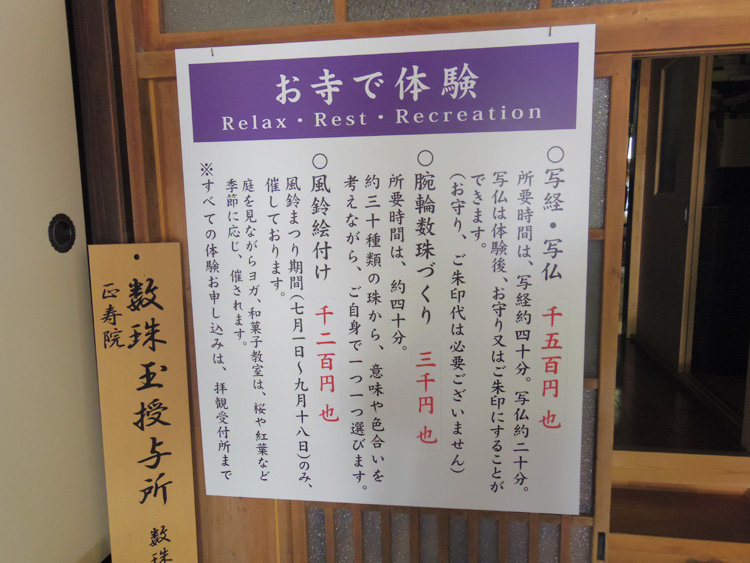 お寺で体験
Relax・Rest・Recreation
○写経・写仏 千五百円也
所要時間は、写経約四十分。写仏約二十分。
写仏は体験後、お守り又はご朱印にすることが
できます。
(お守り、ご朱印代は必要ございません)
○腕輪数珠づくり 三千円也
所要時間は、約四十分。
約三十種類の珠から、意味や色合いを
考えながら、ご自身で一つ一つ選びます。
○風鈴絵付け 千二百円也
風鈴まつり期間(七月一日~九月十八日)のみ、
催しております。
庭を見ながらヨガ、和菓子教室は、桜や紅葉など
季節に応じ、催されます。
※すべての体験お申し込みは、拝観受付所まで
・数珠玉授与所
正寿院
数珠